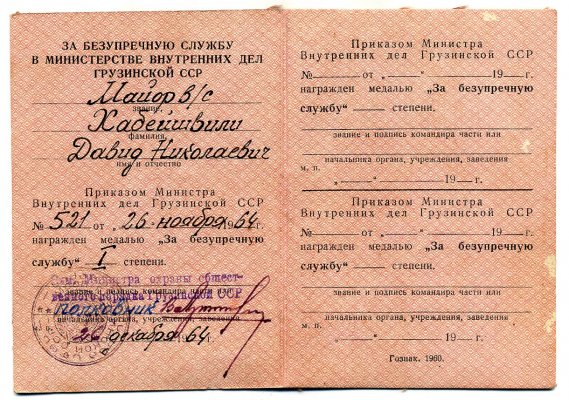 ЗА БЕЗУПРЕЧНУЮ СЛУЖБУ
В МИНИСТЕРСТВЕ ВНУТРЕННИХ ДЕЛ
ГРУЗИНСКОЙ ССР
Майор в/с
звание,
Хадейшвили
фамилия,
Давид Николаевич
имя и отчество
Приказом Министра
Внутренних дел Грузинской ССР
№ 521 от „26" ноября 1964 г.
награжден медалью „За безупречную
службу“ I степени.
Зам. Министра охраны общест-
звание и подпись командира части или
венного порядка Грузинской ССР
полковник
начальника органа, учреждения, заведения
26 декабря 1964 г.
Приказом Министра
Внутренних дел Грузинской ССР
№ — от „—“ — 19— г.
награжден медалью „За безупречную
службу“ — степени.
звание и подпись командира части или
начальника органа, учреждения, заведения
м. п. „—“ — 19— г.
Приказом Министра
Внутренних дел Грузинской ССР
№ — от „—“ — 19— г.
награжден медалью „За безупречную
службу“ — степени.
звание и подпись командира части или
начальника органа, учреждения, заведения
м. п. „—“ — 19— г.
Гознак. 1960.